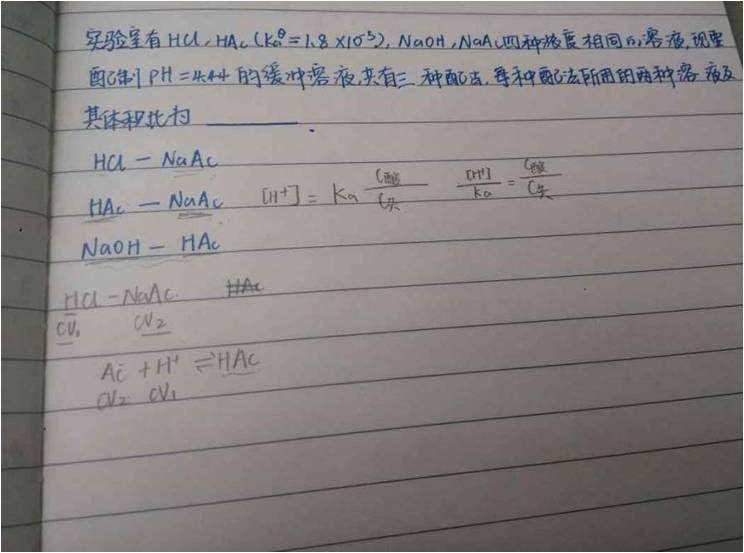 实验室有HCl,HAc(Ka^θ=1.8×10^-5),NaOH,NaAc四种浓度相同的溶液,现要
配制PH=4.44的缓冲溶液,共有三种配法,每种配法所用的两种溶液及
其体积比为________.
HCl — NaAc
HAc — NaAc [H+] = Ka C酸/C共 [H+]/Ka = C酸/C共
NaOH — HAc
HCl - NaAc. HAc
CV1 CV2
Ac^- + H+ ⇌ HAc
CV2 CV1